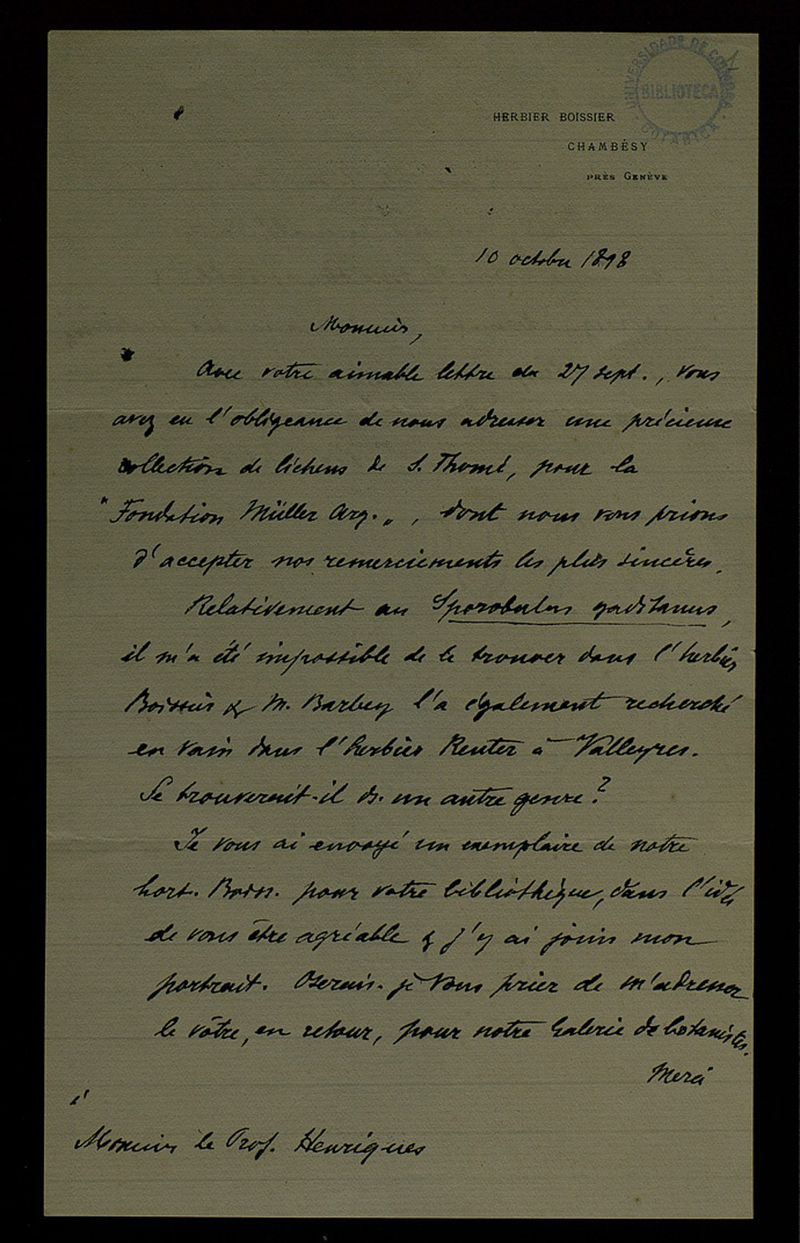 UNIVERSIDADE DE COIMBRA
BIBLIOTECA
BOTANICA
HERBIER BOISSIER
CHAMBÉSY
PRÈS GENÈVE
10 octobre 1898
Monsieur,
Avec votre aimable lettre du 27 sept., vous
avez eu l'obligeance de nous adresser une précieuse
collection de lichens de S. Thomé, pour la
"Fondation Müller Arg.", dont nous vous prions
d'accepter nos remerciements les plus sincères.
Relativement au Sporobolus gaditanus,
il m'a été impossible de le trouver dans l'herbier
Boissier & M. Barbey l'a également recherché
en vain dans l'herbier Reuter à Valleyres.
Se trouverait-il ds. un autre genre?
Je vous ai envoyé un exemplaire de notre
hort. Boiss. pour votre bibliothèque, dans l'idée
de vous être agréable & j'y ai joint mon
portrait. Oserais-je vous prier de m'adresser
le vôtre, en retour, pour notre Galerie de botanistes.
Merci
Monsieur le Prof. Henriques